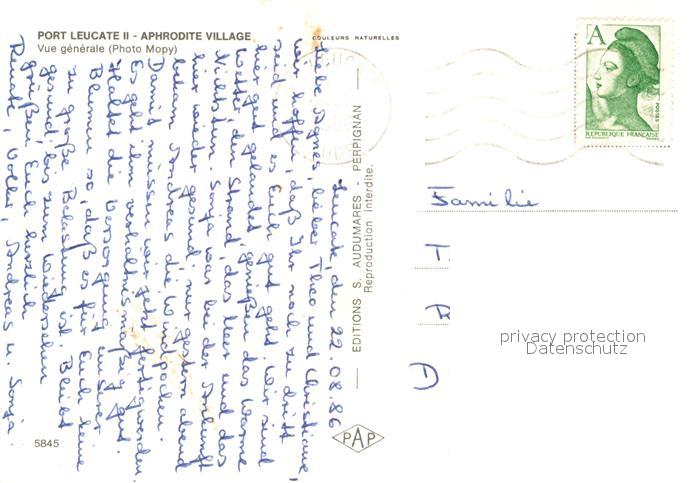 PORT LEUCATE II - APHRODITE VILLAGE
Vue générale (Photo Mopy)
COULEURS NATURELLES
Leucate, den 22.08.86
Liebe Agnes, lieber Theo und Christiane,
wir hoffen, daß Ihr noch zu dritt
seid und es Euch gut geht. Wir sind
hier gut gelandet, genießen das warme
Wetter, den Strand, das Meer und das
Nichtstun. Sonja war bei der Ankunft
hier wieder gesund, nur gestern abend
bekam Andreas die Windpocken.
Damit müssen wir jetzt fertigwerden.
Es geht ihm verhältnismäßig gut.
Haltet die Versorgung unserer
Blumen so, daß es für Euch keine
zu große Belastung ist. Bleibt
gesund, bis zum Wiedersehen
grüßen Euch herzlich
Renate, Volker, Andreas u. Sonja.
EDITIONS S. AUDUMARES - PERPIGNAN
Reproduction interdite.
5845
PAP
A
POSTES
REPUBLIQUE FRANÇAISE
Familie
T
R
D
privacy protection
Datenschutz